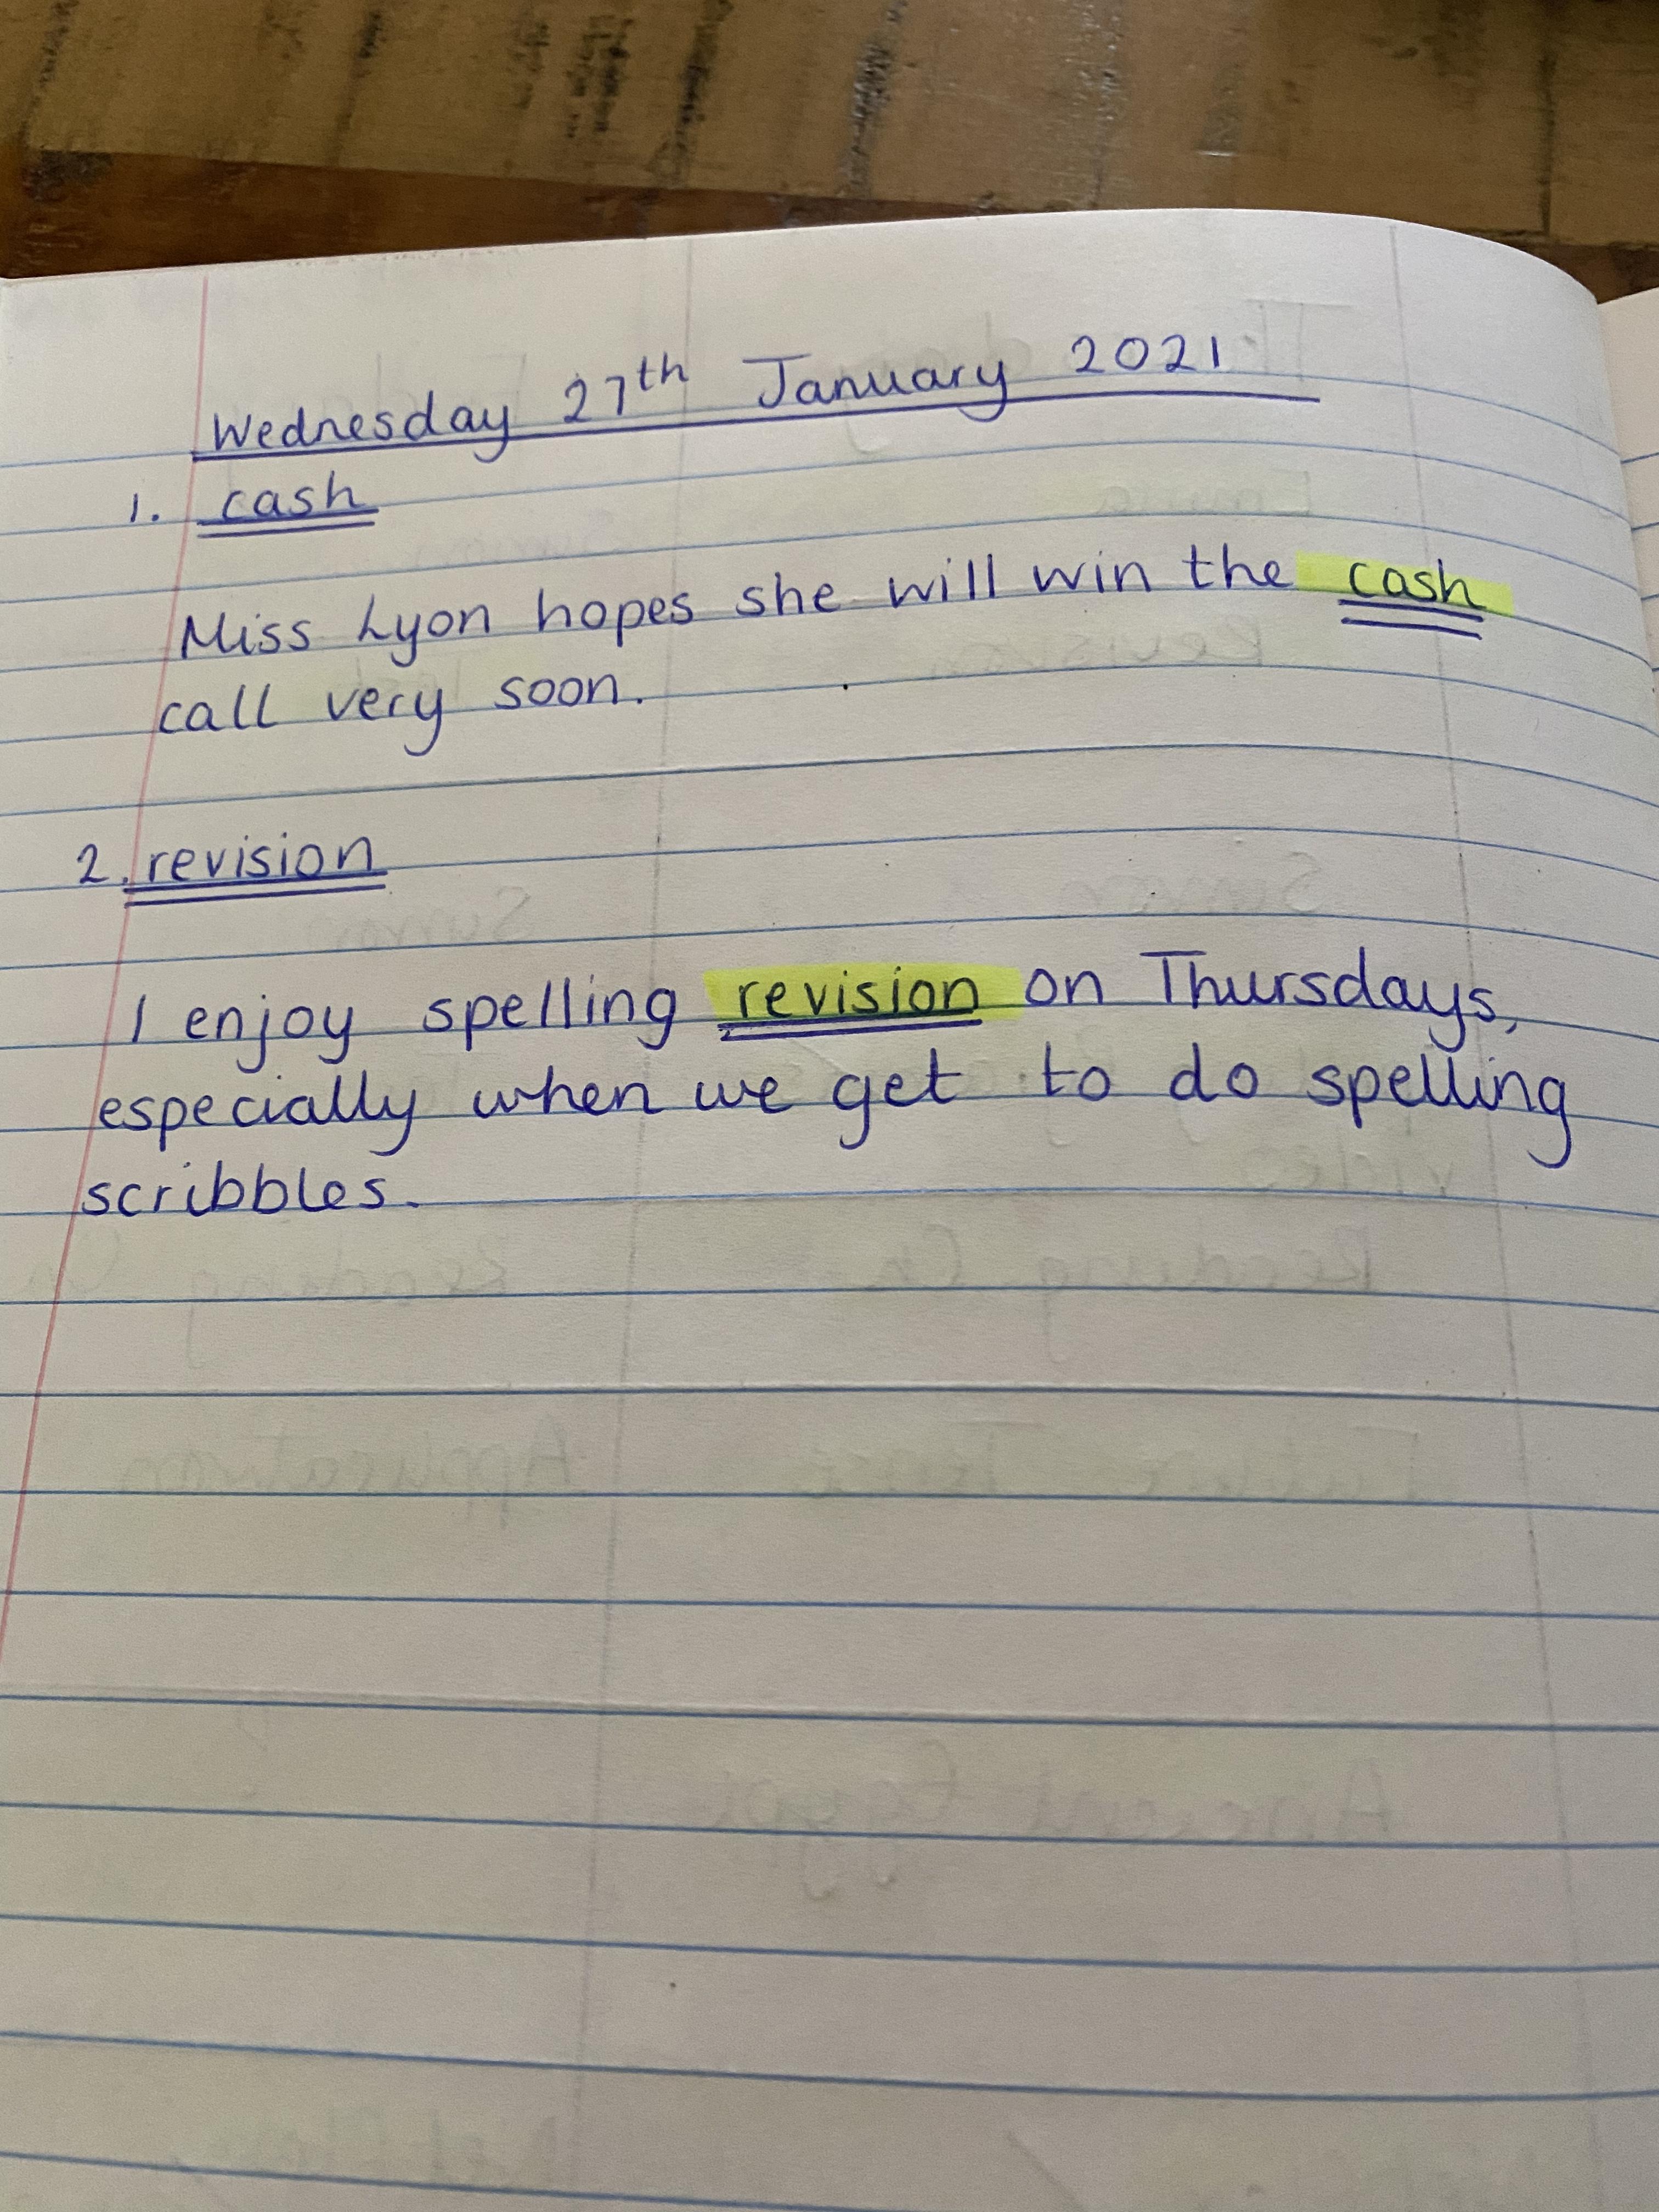 Wednesday 27th January 2021
1. cash
Miss Lyon hopes she will win the cash
call very soon.
2. revision
I enjoy spelling revision on Thursdays,
especially when we get to do spelling
scribbles.